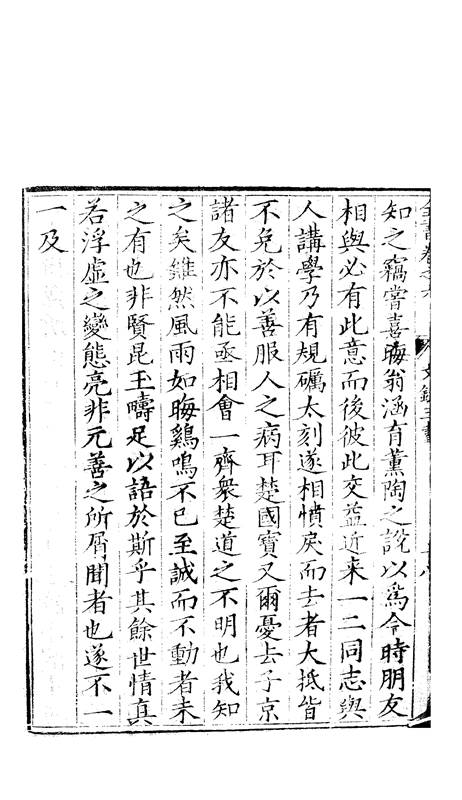 全書卷之六　文錄三書
知之竊嘗喜晦翁涵育薰陶之說以爲今時朋友
相與必有此意而後彼此交益近来一二同志與
人講學乃有規礪太刻遂相憤戾而去者大抵皆
不免於以善服人之病耳楚國寶又爾憂去子京
諸友亦不能亟相會一齊衆楚道之不明也我知
之矣雖然風雨如晦鷄鳴不已至誠而不動者未
之有也非賢昆玉疇足以語於斯乎其餘世情真
若浮虛之變態亮非元善之所屑聞者也遂不一
一及